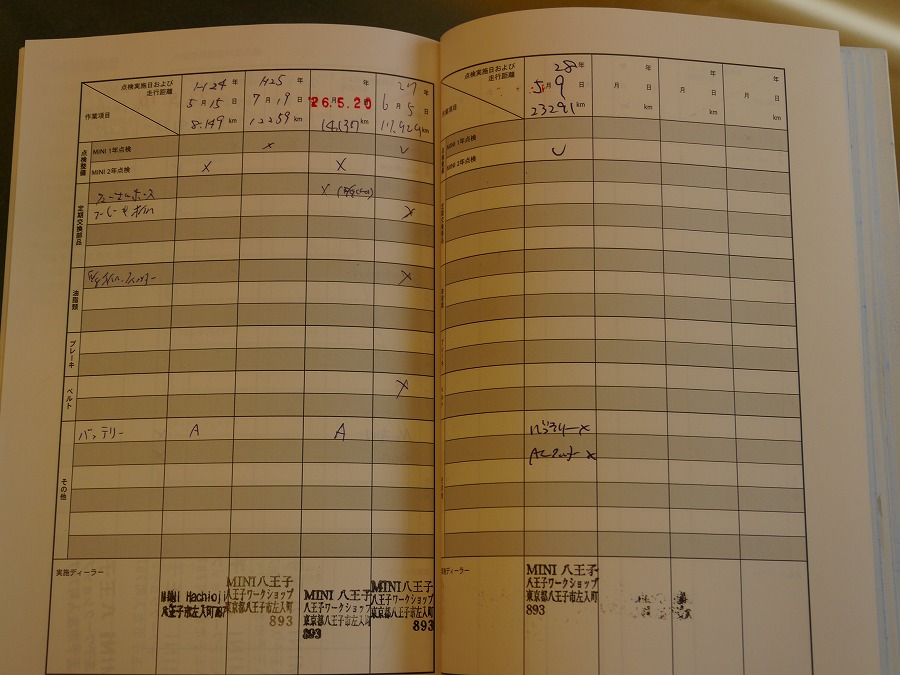 点検実施日および
走行距離
作業項目
H24 年
5月15日
8,149 km
H25 年
7月19日
12259 km
年
26.5.20
14,137 km
27 年
6月5日
17,929 km
点検整備
MINI 1年点検 × ∨
MINI 2年点検 × ×
定期交換部品
×
×
油脂類
×
ブレーキ
ベルト
×
その他
バッテリー A A
実施ディーラー
MINI Hachioji
八王子市左入町
MINI八王子
八王子ワークショップ
東京都八王子市左入町
893
MINI八王子
八王子ワークショップ
東京都八王子市左入町
893
MINI八王子
八王子ワークショップ
東京都八王子市左入町
893
点検実施日および
走行距離
作業項目
28年
5月9日
23291 km
年
月 日
km
年
月 日
km
年
月 日
km
MINI 1年点検
MINI 2年点検 ∨
バッテリー ×
×
実施ディーラー
MINI八王子
八王子ワークショップ
東京都八王子市左入町
893